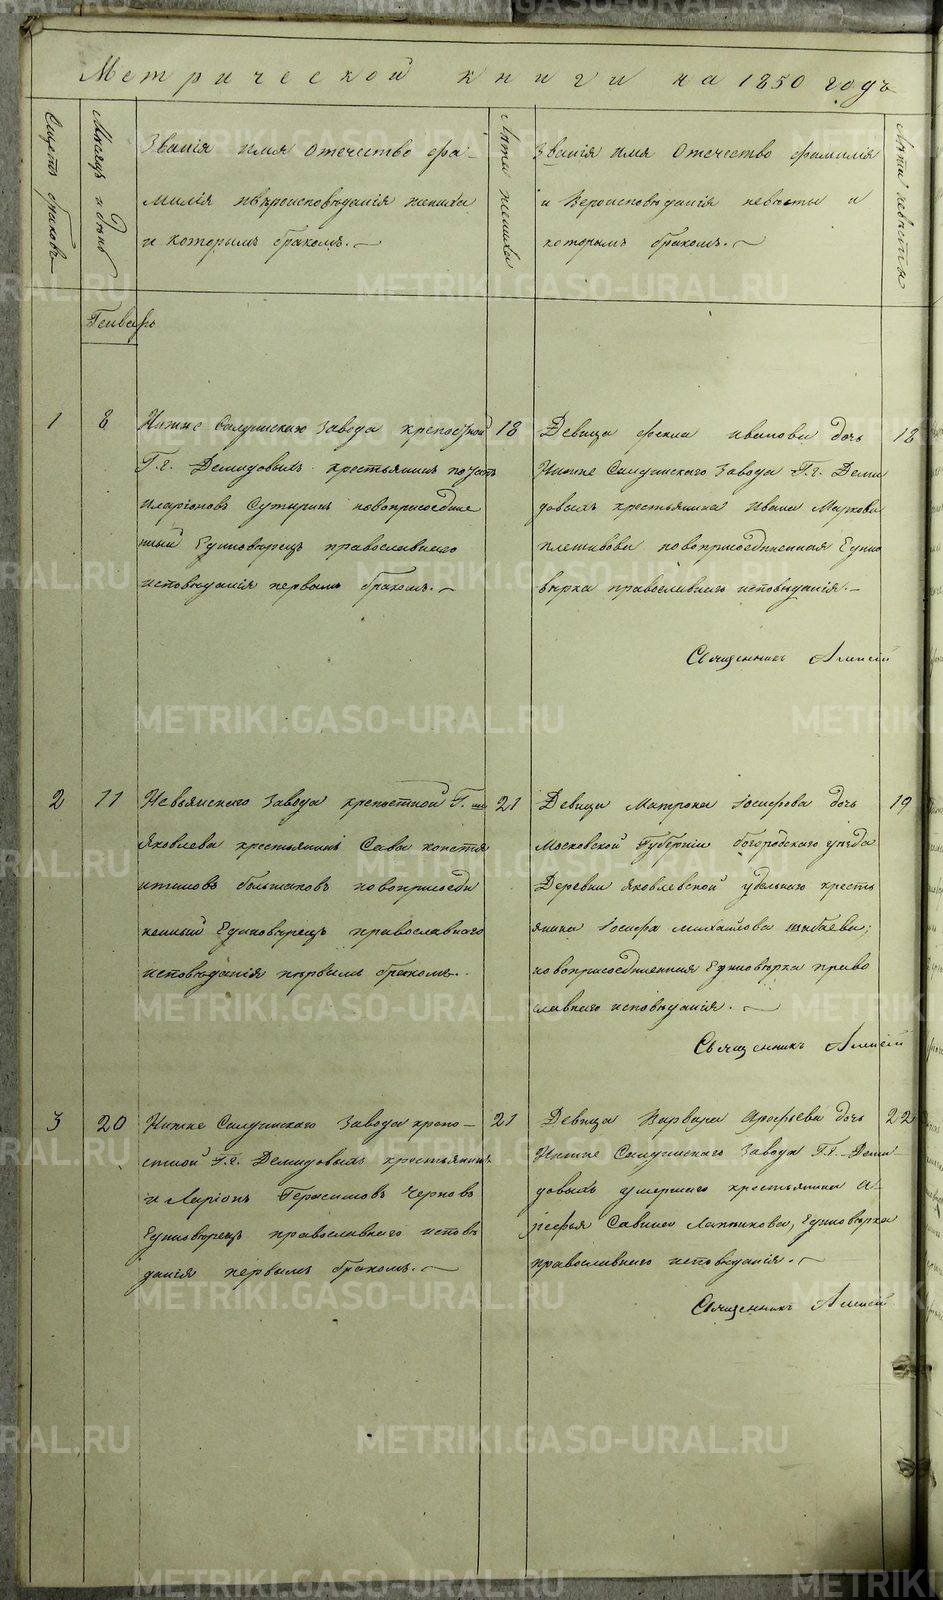 Метрической книги на 1850 годъ
Счетъ браковъ
Месяцъ и день
Званія имя отечество фа-
милія и вѣроисповѣданія жениха
и которымъ бракомъ.
Лѣта жениха
Званія имя отечество фамилія
и вероисповѣданія невѣсты и
которымъ бракомъ.
Лѣта невѣсты
Генварь
1
8
Нижне Салдинскаго завода крепостной
Г.г. Демидовыхъ крестьянинъ
Иларіоновъ Сутыринъ новоприсоедине
нный Единовѣрецъ православнаго
исповѣданія первымъ бракомъ.
18
Девица Фекла Иванова дочь
Нижне Салдинскаго завода Г.г. Деми
довыхъ крестьянина Ивана Маркова
плешивова новоприсоединенная Едино
вѣрка православнаго исповѣданія.
18
Священникъ Алексій
2
11
Невьянскаго завода крепостной Г.
Яковлева крестьянинъ Сава констан
тиновъ большаковъ новоприсоеди
ненный Единовѣрецъ православнаго
исповѣданія первымъ бракомъ.
21
Девица Матрона Іосифова дочь
Московской Губерніи богородскаго уѣзда
Деревни Яковлевской удельнаго кресть
янина Іосифа михайлова шибаева;
новоприсоединенная Единовѣрка право
славнаго исповѣданія.
19
Священникъ Алексій
3
20
Нижне Салдинскаго завода крепо-
стной Г.г. Демидовыхъ крестьянинъ
и Ларіонъ Герасимовъ Черновъ
Единовѣрецъ православнаго исповѣ
данія первымъ бракомъ.
21
Девица Варвара Арефьева дочь
Нижне Салдинскаго завода Г.г. Деми-
довыхъ умершаго крестьянина А-
рефья Савина Лапшикова, Единовѣрка
православнаго исповѣданія.
22
Священникъ Алексій
METRIKI.GASO-URAL.RU